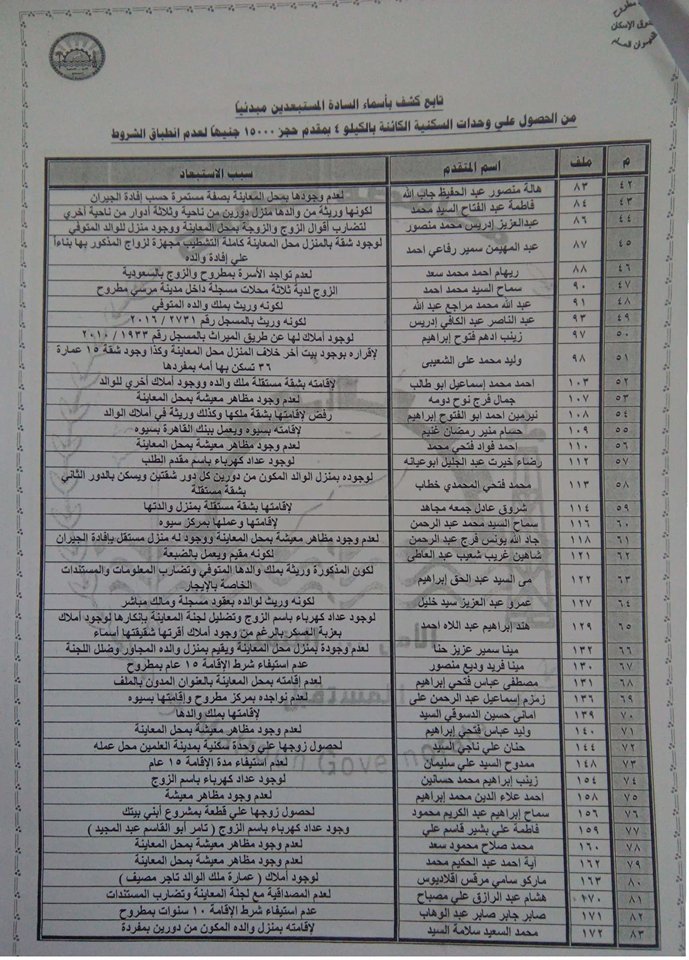 مطروح
الإسكان
تابع كشف بأسماء السادة المستبعدين مبدئيا
من الحصول علي وحدات السكنية الكائنة بالكيلو ٤ بمقدم حجز ١٥٠٠٠ جنيها لعدم انطباق الشروط
م ملف اسم المتقدم سبب الاستبعاد
٤٢ ٨٣ هالة منصور عبد الحفيظ جاب الله لعدم وجودها بمحل المعاينة بصفة مستمرة حسب إفادة الجيران
٤٣ ٨٤ فاطمة عبد الفتاح السيد محمد لكونها وريثة من والدها منزل دورين من ناحية وثلاثة أدوار من ناحية أخري
٤٤ ٨٦ عبدالعزيز إدريس محمد منصور لتضارب أقوال الزوج والزوجة بمحل المعاينة ووجود منزل للوالد المتوفي
٤٥ ٨٧ عبد المهيمن سمير رفاعي احمد لوجود شقة بالمنزل محل المعاينة كاملة التشطيب مجهزة لزواج المذكور بها بناءاً
علي إفادة والده
٤٦ ٨٨ ريهام احمد محمد سعد لعدم تواجد الأسرة بمطروح والزوج بالسعودية
٤٧ ٩٠ سماح السيد محمد احمد الزوج لدية ثلاثة محلات مسجلة داخل مدينة مرسي مطروح
٤٨ ٩١ عبد الله محمد مراجع عبد الله لكونه وريث بملك والده المتوفي
٤٩ ٩٣ عبد الناصر عبد الكافي إدريس لكونه وريث بالمسجل رقم ٢٧٣١ / ٢٠١٦
٥٠ ٩٧ زينب ادهم فتوح إبراهيم لوجود أملاك لها عن طريق الميراث بالمسجل رقم ١٩٣٣ / ٢٠١٠
٥١ ٩٨ وليد محمد على الشعيبى لإقراره بوجود بيت أخر خلاف المنزل محل المعاينة وكذا وجود شقة ١٥ عمارة
٣٦ تسكن بها أمه بمفردها
٥٢ ١٠٣ احمد محمد إسماعيل ابو طالب لإقامته بشقة مستقلة ملك والده ووجود أملاك أخري للوالد
٥٣ ١٠٧ جمال فرج نوح دومه لعدم وجود مظاهر معيشة بمحل المعاينة
٥٤ ١٠٨ نيرمين احمد ابو الفتوح إبراهيم رفض لإقامتها بشقة ملكها وكذلك وريثة في أملاك الوالد
٥٥ ١٠٩ حسام منير رمضان غنيم لإقامته بسيوه ويعمل ببنك القاهرة بسيوه
٥٦ ١١٠ احمد فواد فتحي محمد لعدم وجود مظاهر معيشة بمحل المعاينة
٥٧ ١١٢ رضاء خيرت عبد الجليل ابوعيانه لوجود عداد كهرباء باسم مقدم الطلب
٥٨ ١١٣ محمد فتحي المحمدي خطاب لوجوده بمنزل الوالد المكون من دورين كل دور شقتين ويسكن بالدور الثاني
بشقة مستقلة
٥٩ ١١٤ شروق عادل جمعه مجاهد لإقامتها بشقة مستقلة بمنزل والدتها
٦٠ ١١٦ سماح السيد محمد عبد الرحمن لإقامتها وعملها بمركز سيوه
٦١ ١١٨ جاد الله يونس فرج عبد الرحمن لعدم وجود مظاهر معيشة بمحل المعاينة ووجود له منزل مستقل بإفادة الجيران
٦٢ ١٢١ شاهين غريب شعيب عبد العاطى لكونه مقيم ويعمل بالضبعة
٦٣ ١٢٢ مى السيد عبد الحق إبراهيم لكون المذكورة وريثة بملك والدها المتوفي وتضارب المعلومات والمستندات
الخاصة بالإيجار
٦٤ ١٢٧ عمرو عبد العزيز سيد خليل لكونه وريث لوالده بعقود مسجلة ومالك مباشر
٦٥ ١٢٩ هند إبراهيم عبد اللاه احمد لوجود عداد كهرباء باسم الزوج وتضليل لجنة المعاينة بإنكارها لوجود أملاك
بعزبة العسكر بالرغم من وجود أملاك أقرتها شقيقتها أسماء
٦٦ ١٣٢ مينا سمير عزيز حنا لعدم وجودة بمنزل محل المعاينة ويقيم بمنزل والده المجاور وضلل اللجنة
٦٧ ١٣٠ مينا فريد وديع منصور عدم استيفاء شرط الإقامة ١٥ عام بمطروح
٦٨ ١٣١ مصطفى عباس فتحي إبراهيم لعدم إقامته بمحل المعاينة بالعنوان المدون بالملف
٦٩ ١٣٦ زمزم إسماعيل عبد الرحمن على لعدم تواجده بمركز مطروح وإقامتها بسيوه
٧٠ ١٣٩ امانى حسين الدسوقي السيد لإقامتها بملك والدها
٧١ ١٤٠ وليد عباس فتحي إبراهيم لعدم وجود مظاهر معيشة بمحل المعاينة
٧٢ ١٤٤ حنان علي ناجي السيد لحصول زوجها علي وحدة سكنية بمدينة العلمين محل عمله
٧٣ ١٤٨ ممدوح السيد علي سليمان لعدم استيفاء مدة الإقامة ١٥ عام
٧٤ ١٥٤ زينب إبراهيم محمد حسانين لوجود عداد كهرباء باسم الزوج
٧٥ ١٥٨ احمد علاء الدين محمد إبراهيم لعدم وجود مظاهر معيشة
٧٦ ١٥٦ سماح إبراهيم عبد الكريم محمود لحصول زوجها علي قطعة بمشروع أبني بيتك
٧٧ ١٥٩ فاطمة علي بشير قاسم علي وجود عداد كهرباء باسم الزوج ( تامر أبو القاسم عبد المجيد )
٧٨ ١٦٠ محمد صلاح محمود سعد لعدم وجود مظاهر معيشة بمحل المعاينة
٧٩ ١٦٢ آية احمد عبد الحكيم محمد لعدم وجود مظاهر معيشة بمحل المعاينة
٨٠ ١٦٣ ماركو سامي مرقس اقلاديوس لوجود أملاك ( عمارة ملك الوالد تاجر مصيف )
٨١ ١٧٠ هشام عبد الرازق علي مصباح لعدم المصداقية مع لجنة المعاينة وتضارب المستندات
٨٢ ١٧١ صابر جابر صابر عبد الوهاب عدم استيفاء شرط الإقامة ١٠ سنوات بمطروح
٨٣ ١٧٢ محمد السعيد سلامة السيد لإقامته بمنزل والده المكون من دورين بمفردة